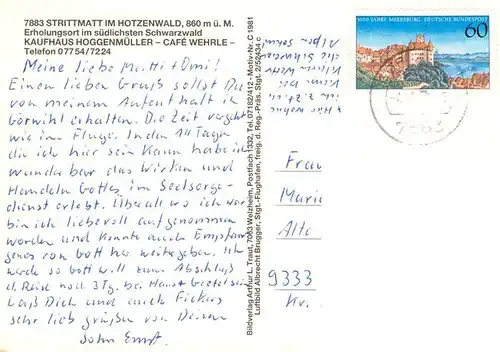 7883 STRITTMATT IM HOTZENWALD, 860 m ü. M.
Erholungsort im südlichsten Schwarzwald
KAUFHAUS HOGGENMÜLLER – CAFÉ WEHRLE –
Telefon 07754/7224
Meine liebe Mutti + Omi!
Einen lieben Gruß sollst Du
von meinem Aufenthalt in
Görwihl erhalten. Die Zeit vergeht
wie im Fluge. In den 14 Tagen
die ich hier sein kann habe ich
wunderbar das Wirken und
Handeln Gottes im Seelsorge-
dienst erlebt. Überall wo ich war
bin ich liebevoll aufgenommen
worden und konnte auch Empfan-
genes von Gott her weitergeben. Ich
werde so Gott will zum Abschluß
d. Reise noch 3 Tg. bei
Laß Dich und auch
sehr lieb grüßen von Deinem
Sohn Ernst.
Bildverlag Arthur L. Traut, 7063 Welzheim, Postfach 1332, Tel. 07182/4412 - Motiv-Nr. C 1981
Luftbild Albrecht Brugger, Stgt.-Flughafen, freig. d. Reg.-Präs. Stgt. 2/52434 c
1000 JAHRE MEERSBURG DEUTSCHE BUNDESPOST
60
7883
Frau
Marie
Alte
9333